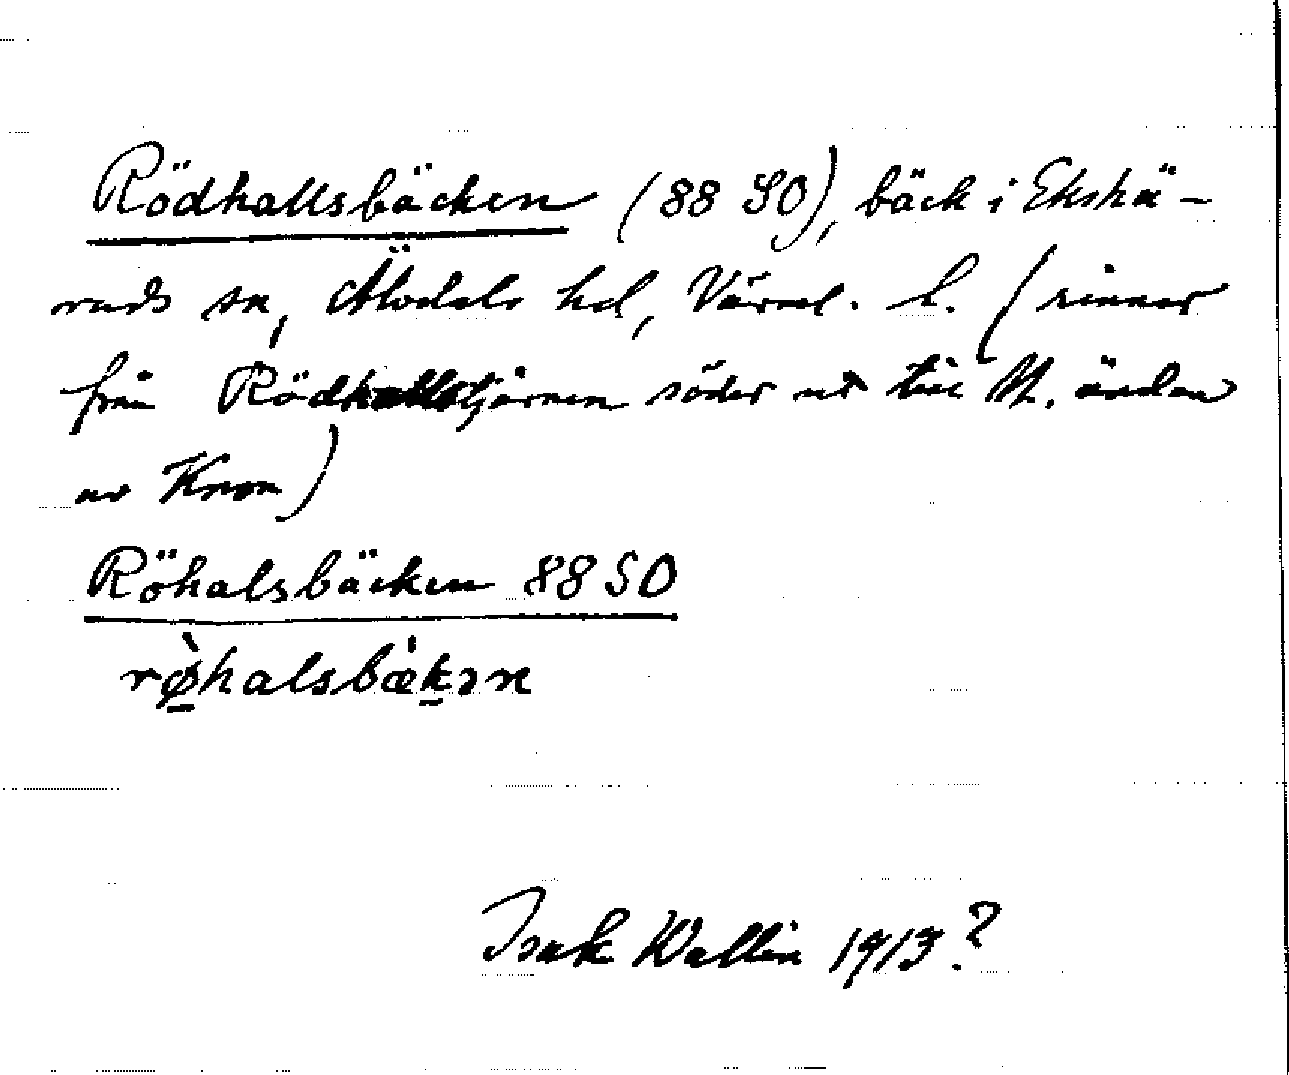 Rödhallsbäcken (88 SO), bäck i Ekshä-
rads sn, Älvdals hd, Värml. l. (rinner
från Rödhallstjärnen söder ut till N. ändan
av Knon)
Röhalsbäcken 88 SO
rø̀halsbæ̀kən
Isak Wallin 1913?